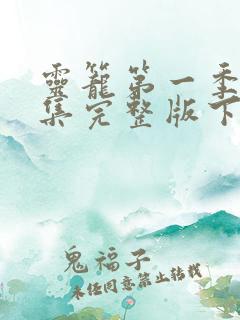 靈籠第一季
集完整版下
鬼福子
未经同意禁止转载